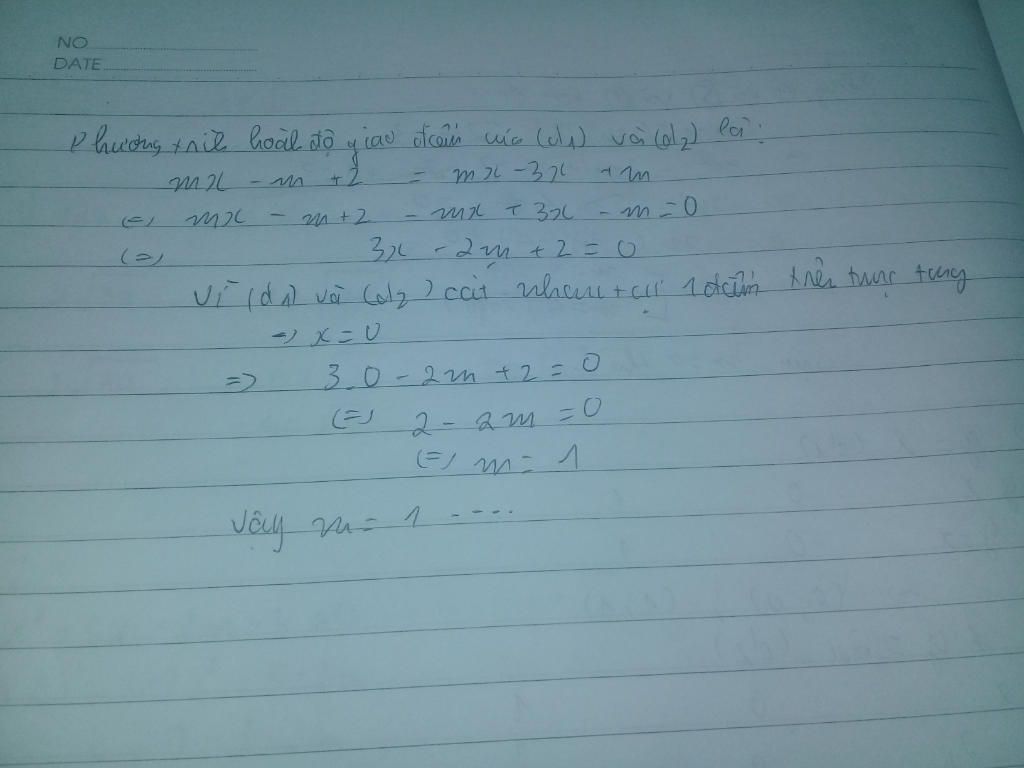 NO
DATE
Phương trình hoành độ giao điểm của (d1) và (d2) là:
mx - m + 2 = mx - 3x + m
(=) mx - m + 2 - mx + 3x - m = 0
(=) 3x - 2m + 2 = 0
Vì (d1) và (d2) cắt nhau tại 1 điểm trên trục tung
=> x = 0
=> 3.0 - 2m + 2 = 0
(=) 2 - 2m = 0
(=) m = 1
Vậy m = 1 ....